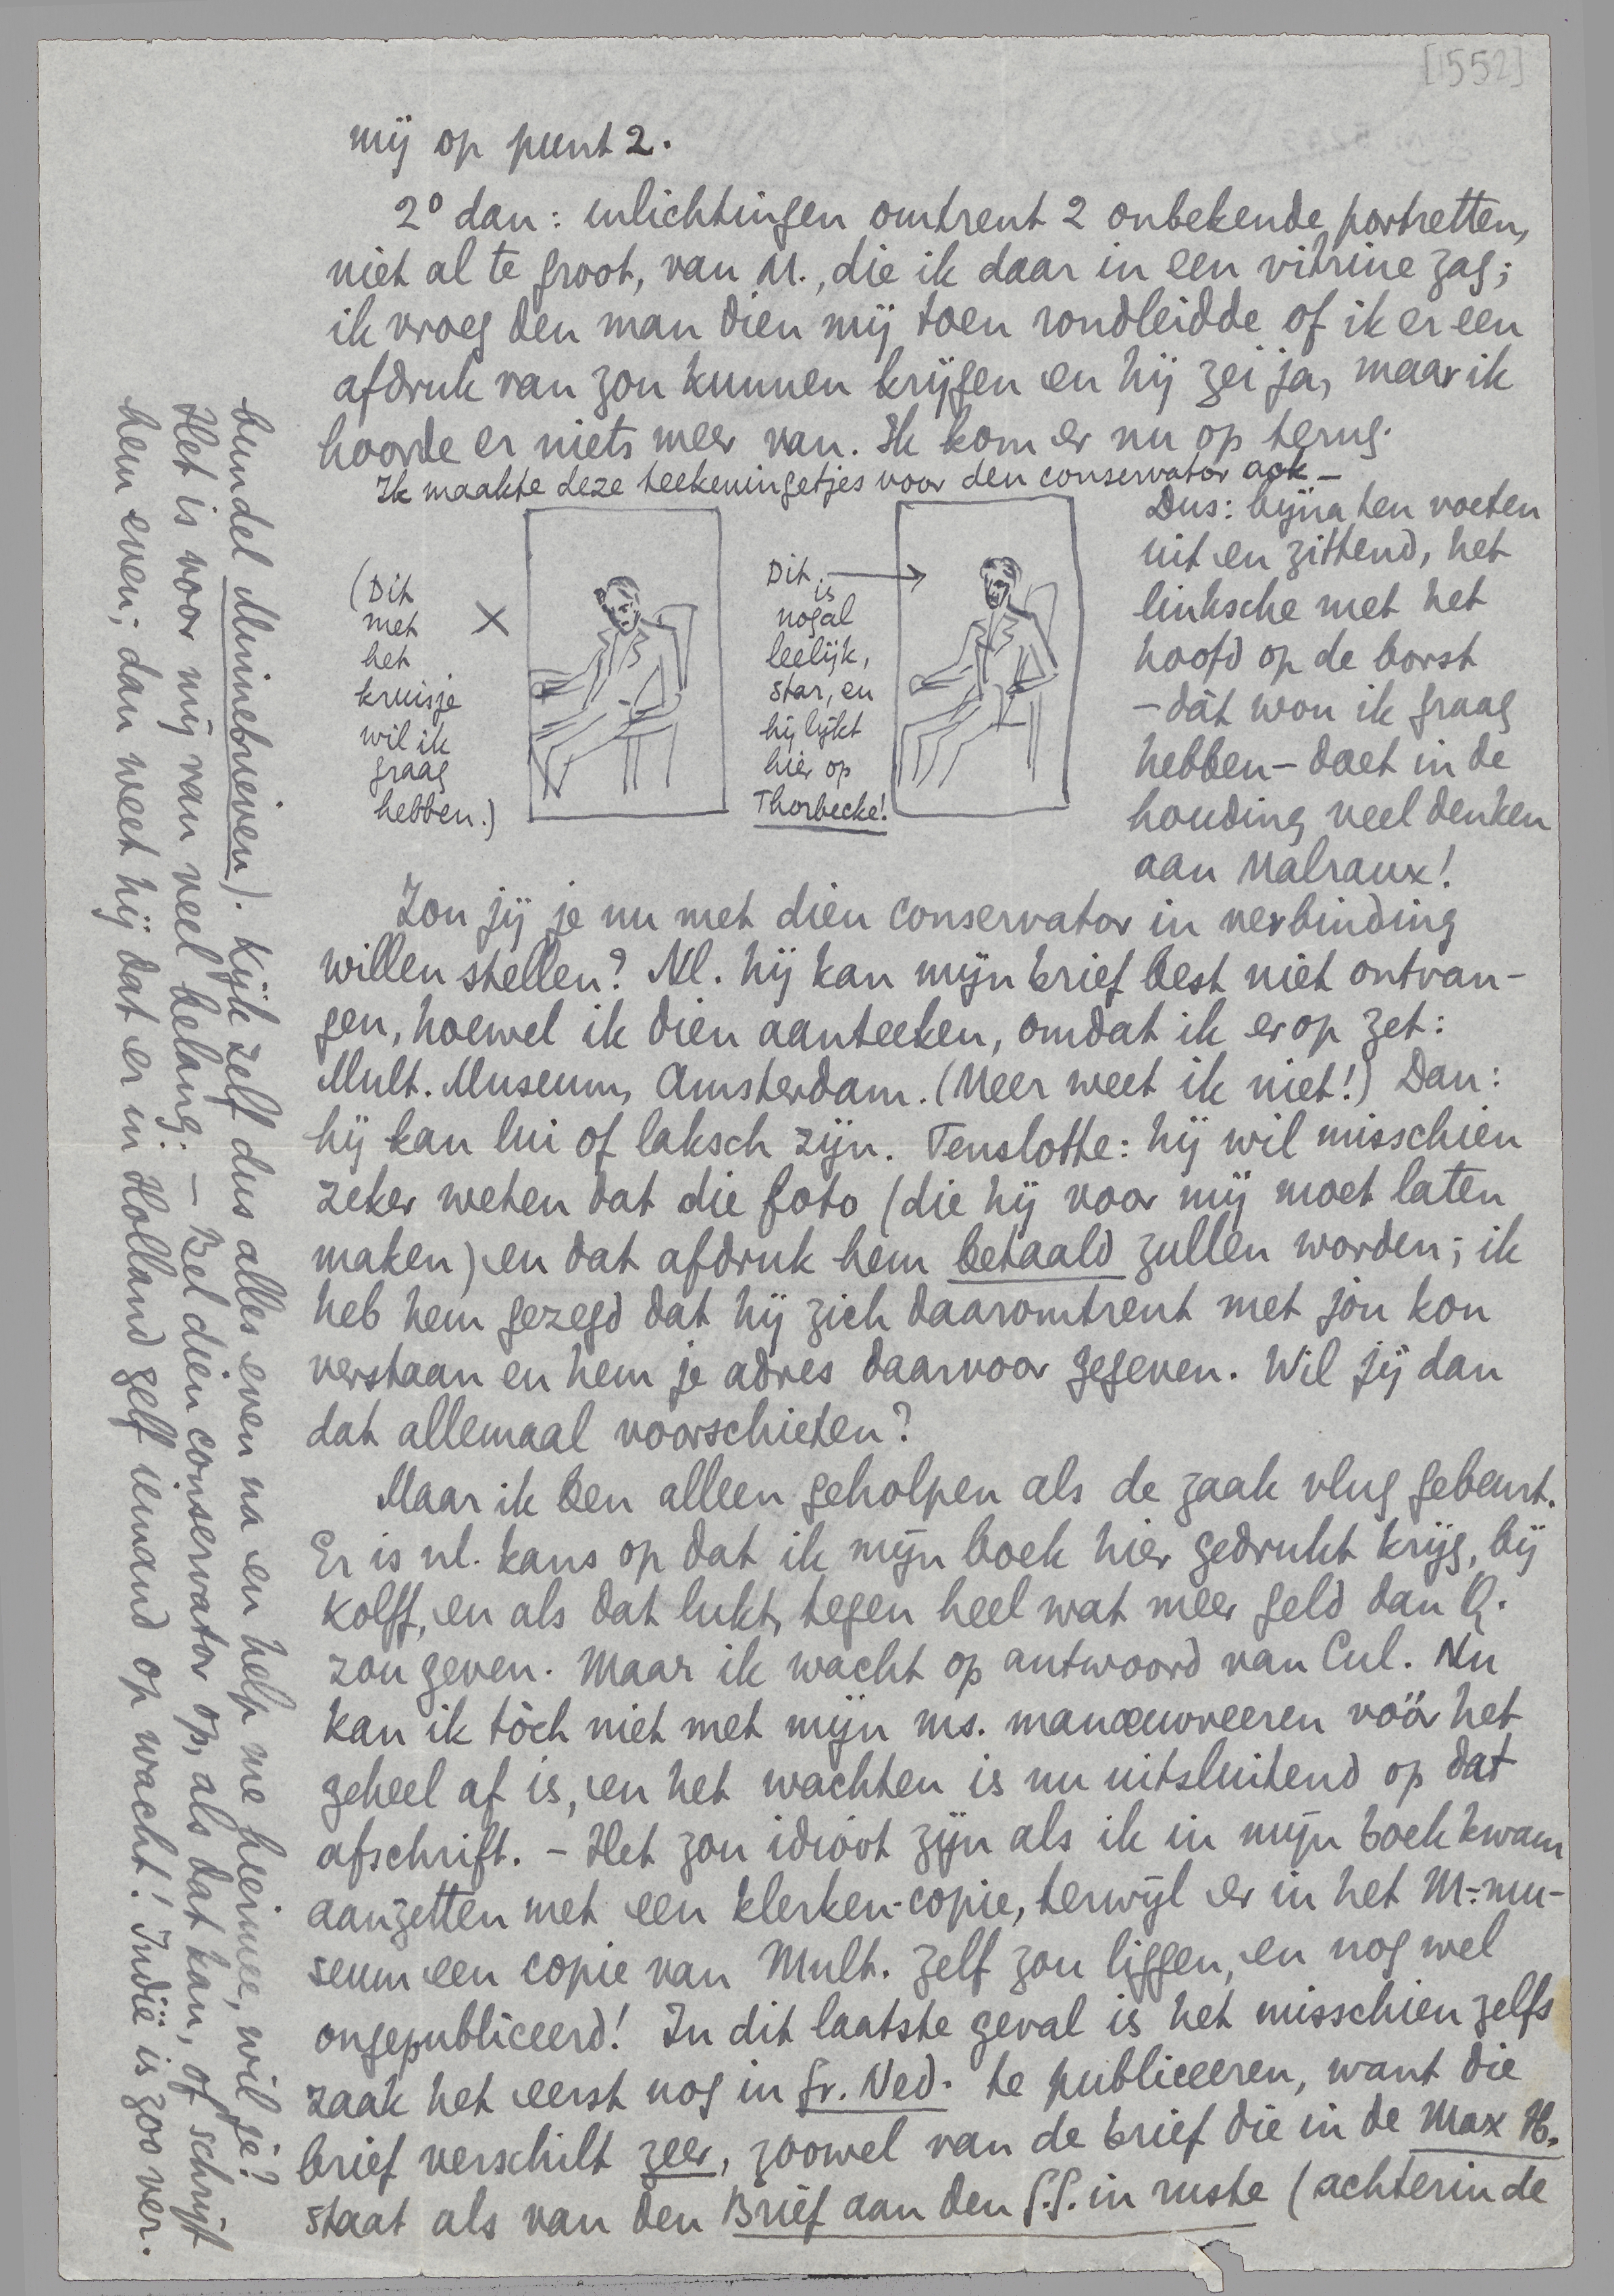 [1552]
mij op punt 2.
2° dan: inlichtingen omtrent 2 onbekende portretten,
niet al te groot, van M., die ik daar in een vitrine zag;
ik vroeg den man dien mij toen rondleidde of ik er een
afdruk van zou kunnen krijgen en hij zei ja, maar ik
hoorde er niets meer van. Ik kom er nu op terug.
Ik maakte deze teekeningetjes voor den conservator ook –
(Dit
met
het
kruisje
wil ik
graag
hebben.)
X
Dit
is
nogal
leelijk,
star, en
hij lijkt
hier op
Thorbecke!
Dus: bijna ten voeten
uit en zittend, het
linksche met het
hoofd op de borst
– dàt wou ik graag
hebben – doet in de
houding veel denken
aan Malraux!
Zou jij je nu met dien conservator in verbinding
willen stellen? Nl. hij kan mijn brief best niet ontvan-
gen, hoewel ik dien aanteeken, omdat ik er op zet:
Mult. Museum, Amsterdam. (Meer weet ik niet!) Dan:
hij kan lui of laksch zijn. Tenslotte: hij wil misschien
zeker weten dat die foto (die hij voor mij moet laten
maken) en dat afdruk hem betaald zullen worden; ik
heb hem gezegd dat hij zich daaromtrent met jou kon
verstaan en hem je adres daarvoor gegeven. Wil jij dan
dat allemaal voorschieten?
Maar ik ben alleen geholpen als de zaak vlug gebeurt.
Er is nl. kans op dat ik mijn boek hier gedrukt krijg, bij
Kolff, en als dat lukt, tegen heel wat meer geld dan Q.
zou geven. Maar ik wacht op antwoord van Cul. Nu
kan ik tòch niet met mijn ms. manœuvreeren vóór het
geheel af is, en het wachten is nu uitsluitend op dat
afschrift. – Het zou idioot zijn als ik in mijn boek kwam
aanzetten met een klerken-copie, terwijl er in het M.-mu-
seum een copie van Mult. zelf zou liggen, en nog wel
ongepubliceerd! In dit laatste geval is het misschien zelfs
zaak het eerst nog in Gr. Ned. te publiceeren, want die
brief verschilt zeer, zoowel van de brief die in de Max H.
staat als van den Brief aan den G.G. in ruste (achterin de
bundel Minnebrieven). Kijk zelf dus alles even na en help me hiermee, wil je?
Het is voor mij van veel belang. – Bel dien conservator op, als dat kan, of schrijf
hem even; dan weet hij dat er in Holland zelf iemand op wacht! Indië is zoo ver.